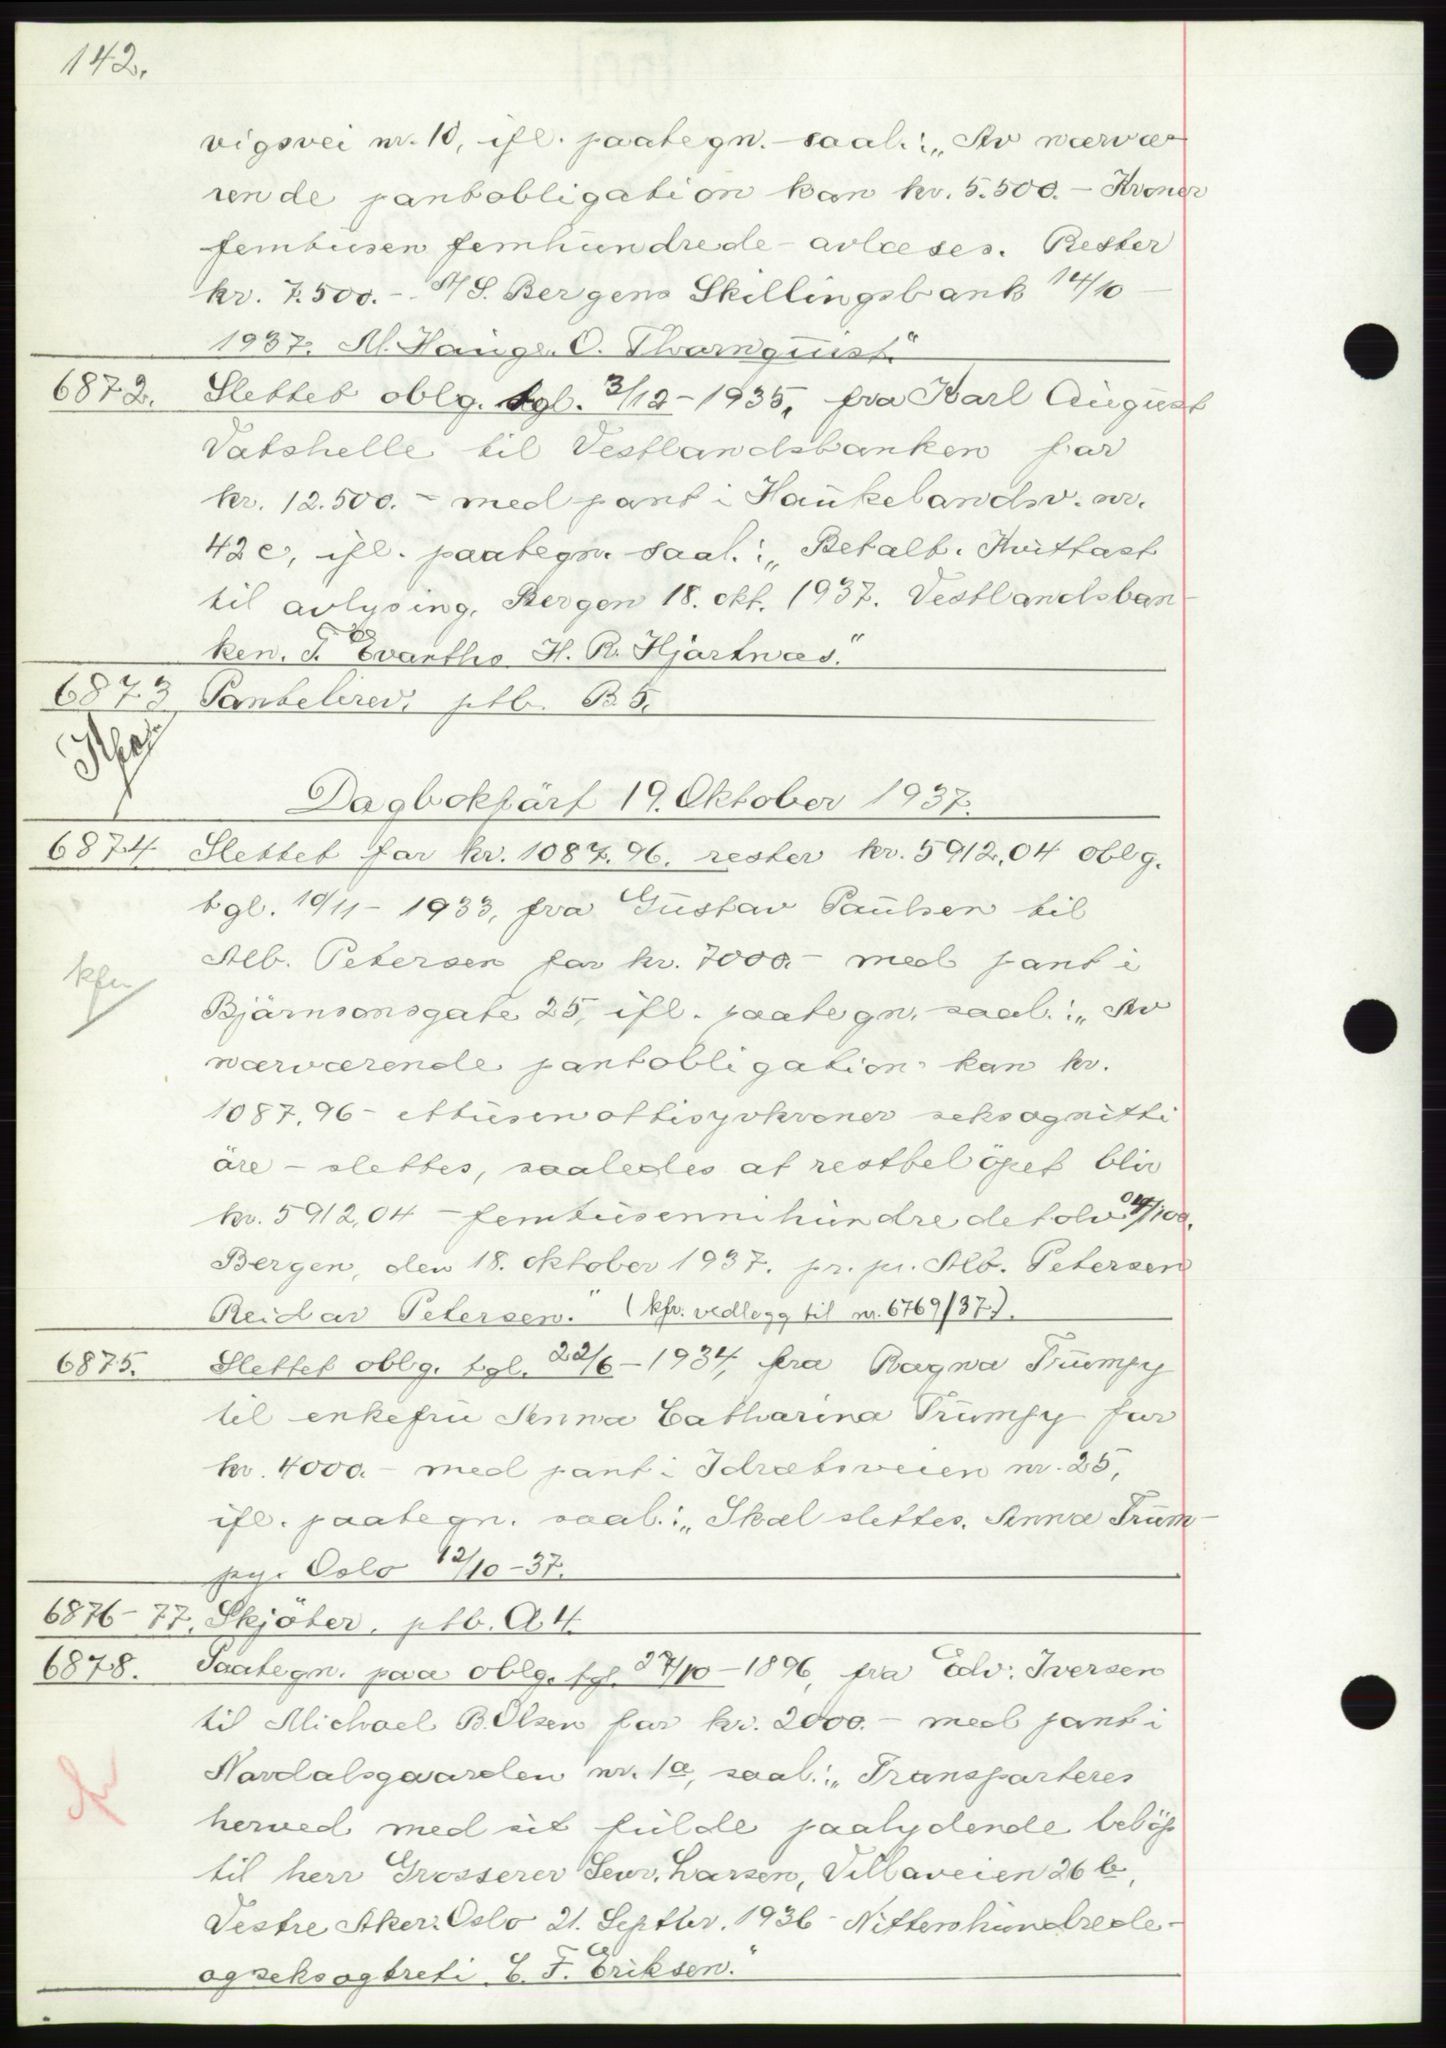 142.
vigsvei nr. 10, ifl. paategn. saal.: „Av nærvæ
rende pantobligation kan kr. 5.500.- Kroner
femtusen femhundrede - avlæses. Rester
kr. 7.500.- A/S. Bergens Skillingsbank 14/10
1937. M. Hauge. O. Thornquist."
6872. Slettet oblg. tgl. 3/12-1935, fra Karl August
Vatshelle til Vestlandsbanken for
kr. 12.500.- med pant i Haukelandsv. nr.
42c, ifl. paategn. saal.: „Betalt. Kvittast
til avlysing. Bergen 18. okt. 1937. Vestlandsban-
ken. T. Evanths H. R. Hjartnæs."
6873 Pantebrev, ptb. B 5.
Dagbokført 19. Oktober 1937.
6874 Slettet for kr. 1087.96. rester kr. 5912,04 oblg.
tgl. 10/11-1933, fra Gustav Paulsen til
Alb. Petersen for kr. 7000.- med pant i
kfr.
Bjørnsonsgate 25, ifl. paategn. saal.: „Av
nærværende pantobligation kan kr.
1087,96- ettusenottisyvkroner seksognitti
øre - slettes, saaledes at restbeløpet blir
kr. 5912,04 - femtusennihundredetolv 04/100.
Bergen, den 18. oktober 1937. pr. pr. Alb. Petersen
Reidar Petersen." (kfr. vedlegg til nr. 6769/37).
6875. Slettet oblg. tgl. 22/6-1934, fra Ragna Trümpy
til enkefru Anna Catharina Trümpy for
kr. 4000. med pant i Idrætsveien nr. 25,
ifl. paategn. saal.: „Skal slettes. Anna Trüm-
py. Oslo 12/10-37.
6876-77. Skjøter, ptb. A 4.
6878. Paategn. paa oblg. tgl. 27/10-1896, fra Edv. Iversen
til Michael B. Olsen for kr. 2000.- med pant i
Nordalsgaarden nr. 1a, saal.: „Transporteres
herved med sit fulde paalydende beløp
til herr Grosserer Sevr. Larsen, Villaveien 26 b,
Vestre Aker. Oslo 21. Septbr. 1936 - Nittenhundrede-
ogseksogtreti. C. F. Eriksen."